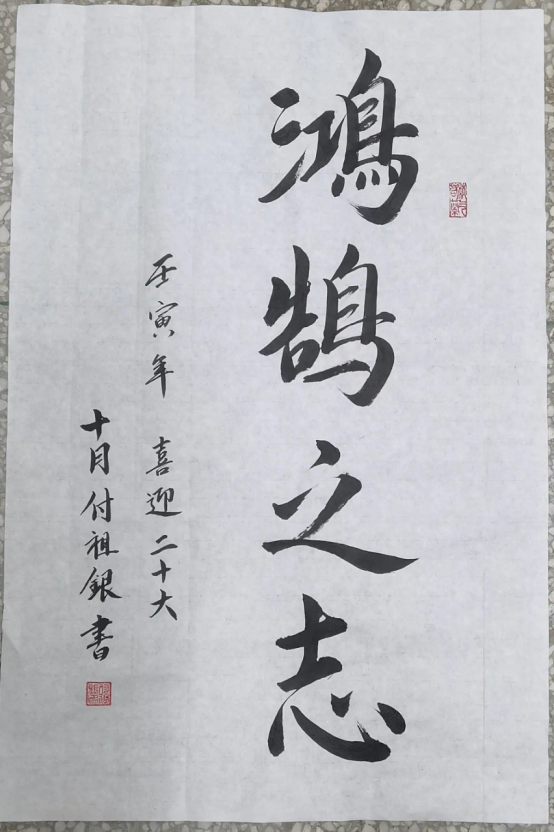 鴻鵠之志
壬寅年 喜迎二十大
十月付祖銀書